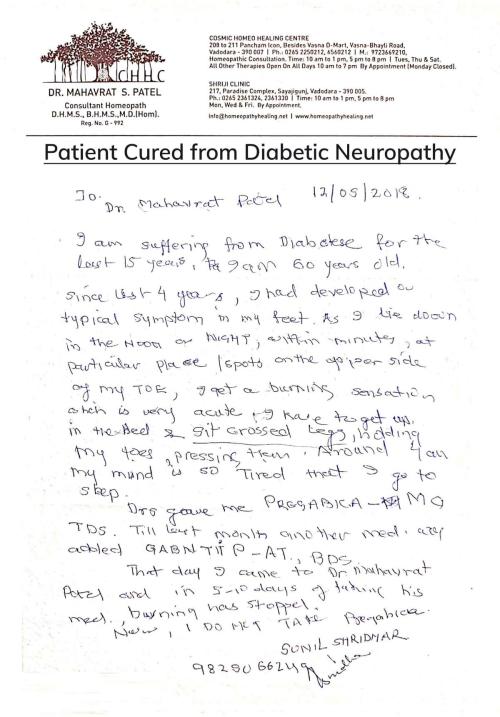 CHHC
DR. MAHAVRAT S. PATEL
Consultant Homeopath
D.H.M.S., B.H.M.S.,M.D.(Hom).
Reg. No. G - 992
COSMIC HOMEO HEALING CENTRE
208 to 211 Pancham Icon, Besides Vasna D-Mart, Vasna-Bhayli Road,
Vadodara - 390 007 | Ph.: 0265 2250212, 6560212 | M.: 9723669210,
Homeopathic Consultation. Time: 10 am to 1 pm, 5 pm to 8 pm | Tues, Thu & Sat.
All Other Therapies Open On All Days 10 am to 7 pm By Appointment (Monday Closed).
SHRIJI CLINIC
217, Paradise Complex, Sayajigunj, Vadodara - 390 005.
Ph.: 0265 2361324, 2361330 | Time: 10 am to 1 pm, 5 pm to 8 pm
Mon, Wed & Fri. By Appointment.
info@homeopathyhealing.net | www.homeopathyhealing.net
Patient Cured from Diabetic Neuropathy
To.
Dr. Mahavrat Patel 12/05/2018.
I am suffering from Diabetese for the
last 15 years, I am 60 years old.
since last 4 years, I had developed a
typical symptom in my feet. As I lie down
in the Noon or NIGHT, within minutes, at
particular place/spots on the upper side
of my TOE, I get a burning sensation
which is very acute. I have to get up
in the Bed & sit crossed legs, holding
my toes, pressing them. Around 4 am
my mind is so Tired that I go to
sleep.
Drs gave me PREGABICA- MG
TDS. Till last month another med.
added GABNTIP-AT, BDS
That day I came to Dr Mahavrat
Patel and in 5-10 days of taking his
med., burning has stopped.
Now, I DO NOT TAKE
SUNIL SHRIDHAR